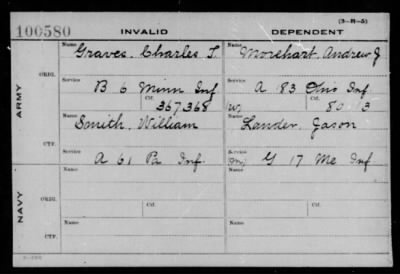 (3-R-5)
100580 INVALID DEPENDENT
Name Name
Graves, Charles T. Morehart, Andrew J
ORIG.
Service Service
B 6 Minn Inf A 83 Ohio Inf
ARMY
Ctf. Ctf.
367,368 (W)
Name Name
Smith, William Lander, Jason
CTF.
Service Service
A 61 Pa Inf (M) G 17 Me Inf
NAVY
ORIG.
Name Ctf. Name Ctf.
CTF.
Name Name